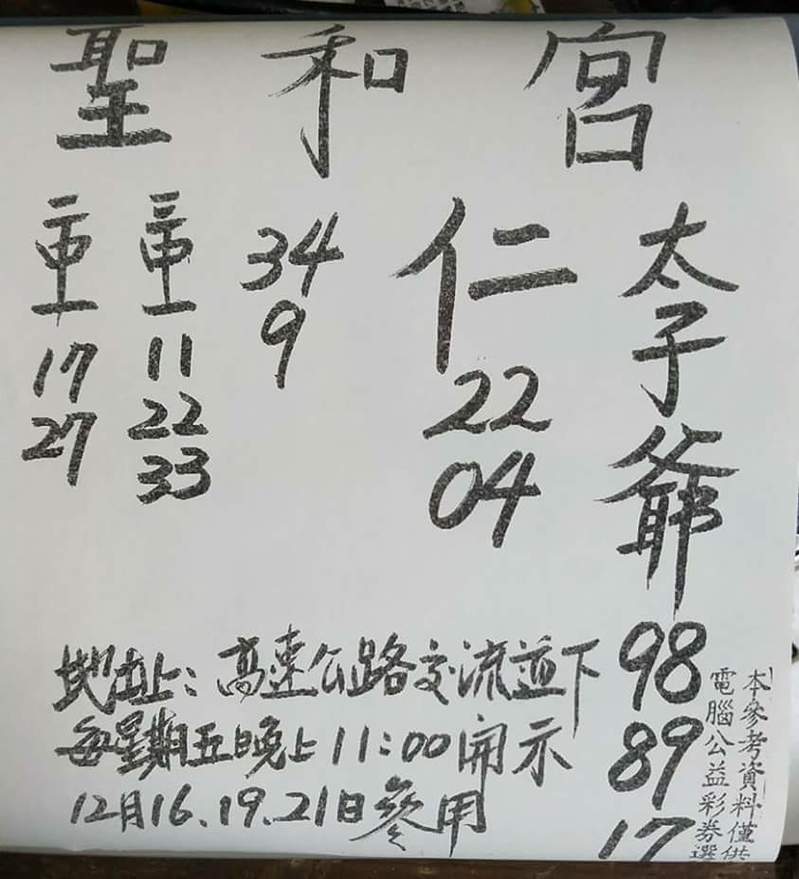 聖和宮
太子爺
98
89
17
仁
22
04
34
9
11
22
33
17
27
地址：高速公路交流道下
每星期五晚上11:00開示
12月16.19.21日參用
本參考資料僅供
電腦公益彩券選